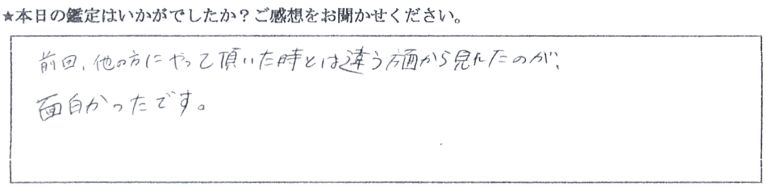 ★本日の鑑定はいかがでしたか？ご感想をお聞かせください。
前回、他の方にやって頂いた時とは違う方面から見れたのが、
面白かったです。